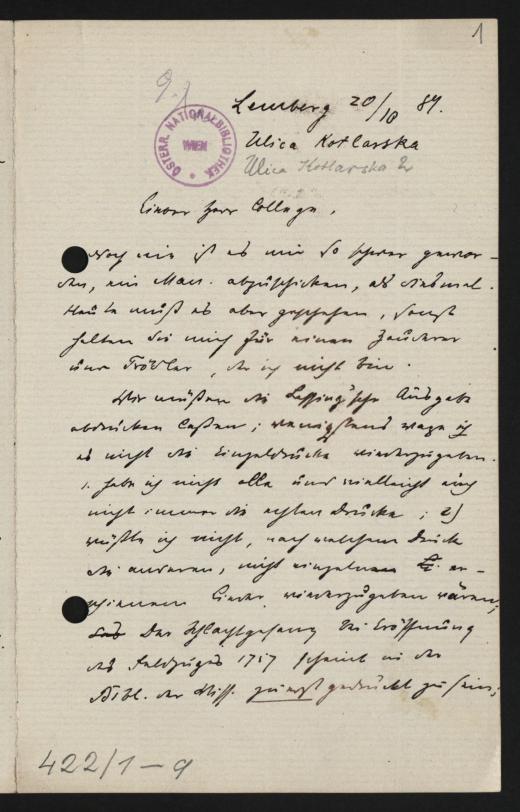 1
g. f.
ÖSTERR. NATIONALBIBLIOTHEK
WIEN
Lemberg 20/10 84.
Ulica Kotlarska
Ulica Kotlarska 2
Lieber Herr College,
Noch nie ist es mir so schwer gewor-
den, ein Man. abzuschicken, als diesmal.
Heute muß es aber geschehen, sonst
halten Sie mich für einen Zauderer
und Trödler, der ich nicht bin.
Wir müßen die Lessing'sche Ausgabe
abdrucken laßen; wenigstens wage ich
es nicht die Einzeldrucke wiederzugeben.
1. habe ich nicht alle und vielleicht auch
nicht immer die echten Drucke; 2)
wüßte ich nicht, nach welchem Druck
die anderen, nicht einzelnen er-
schienenen Lieder wiederzugeben wären;
Der Schlachtgesang bei Eröffnung
des Feldzuges 1757 scheint in der
Bibl. der Wiss. zuerst gedruckt zu sein;
422/1-9